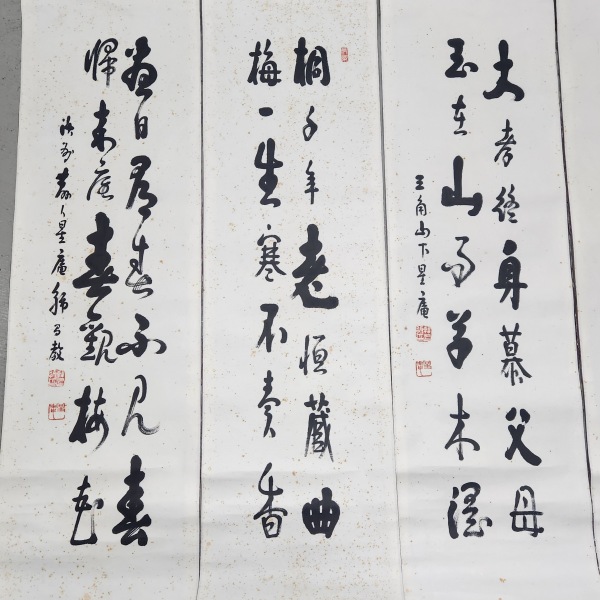 大孝終身慕父母
玉在山而草木潤
三角山下昰庵
桐千年老恒藏曲
梅一生寒不賣香
盡日尋春不見春
歸来庭春觀梅花
昰庵
教